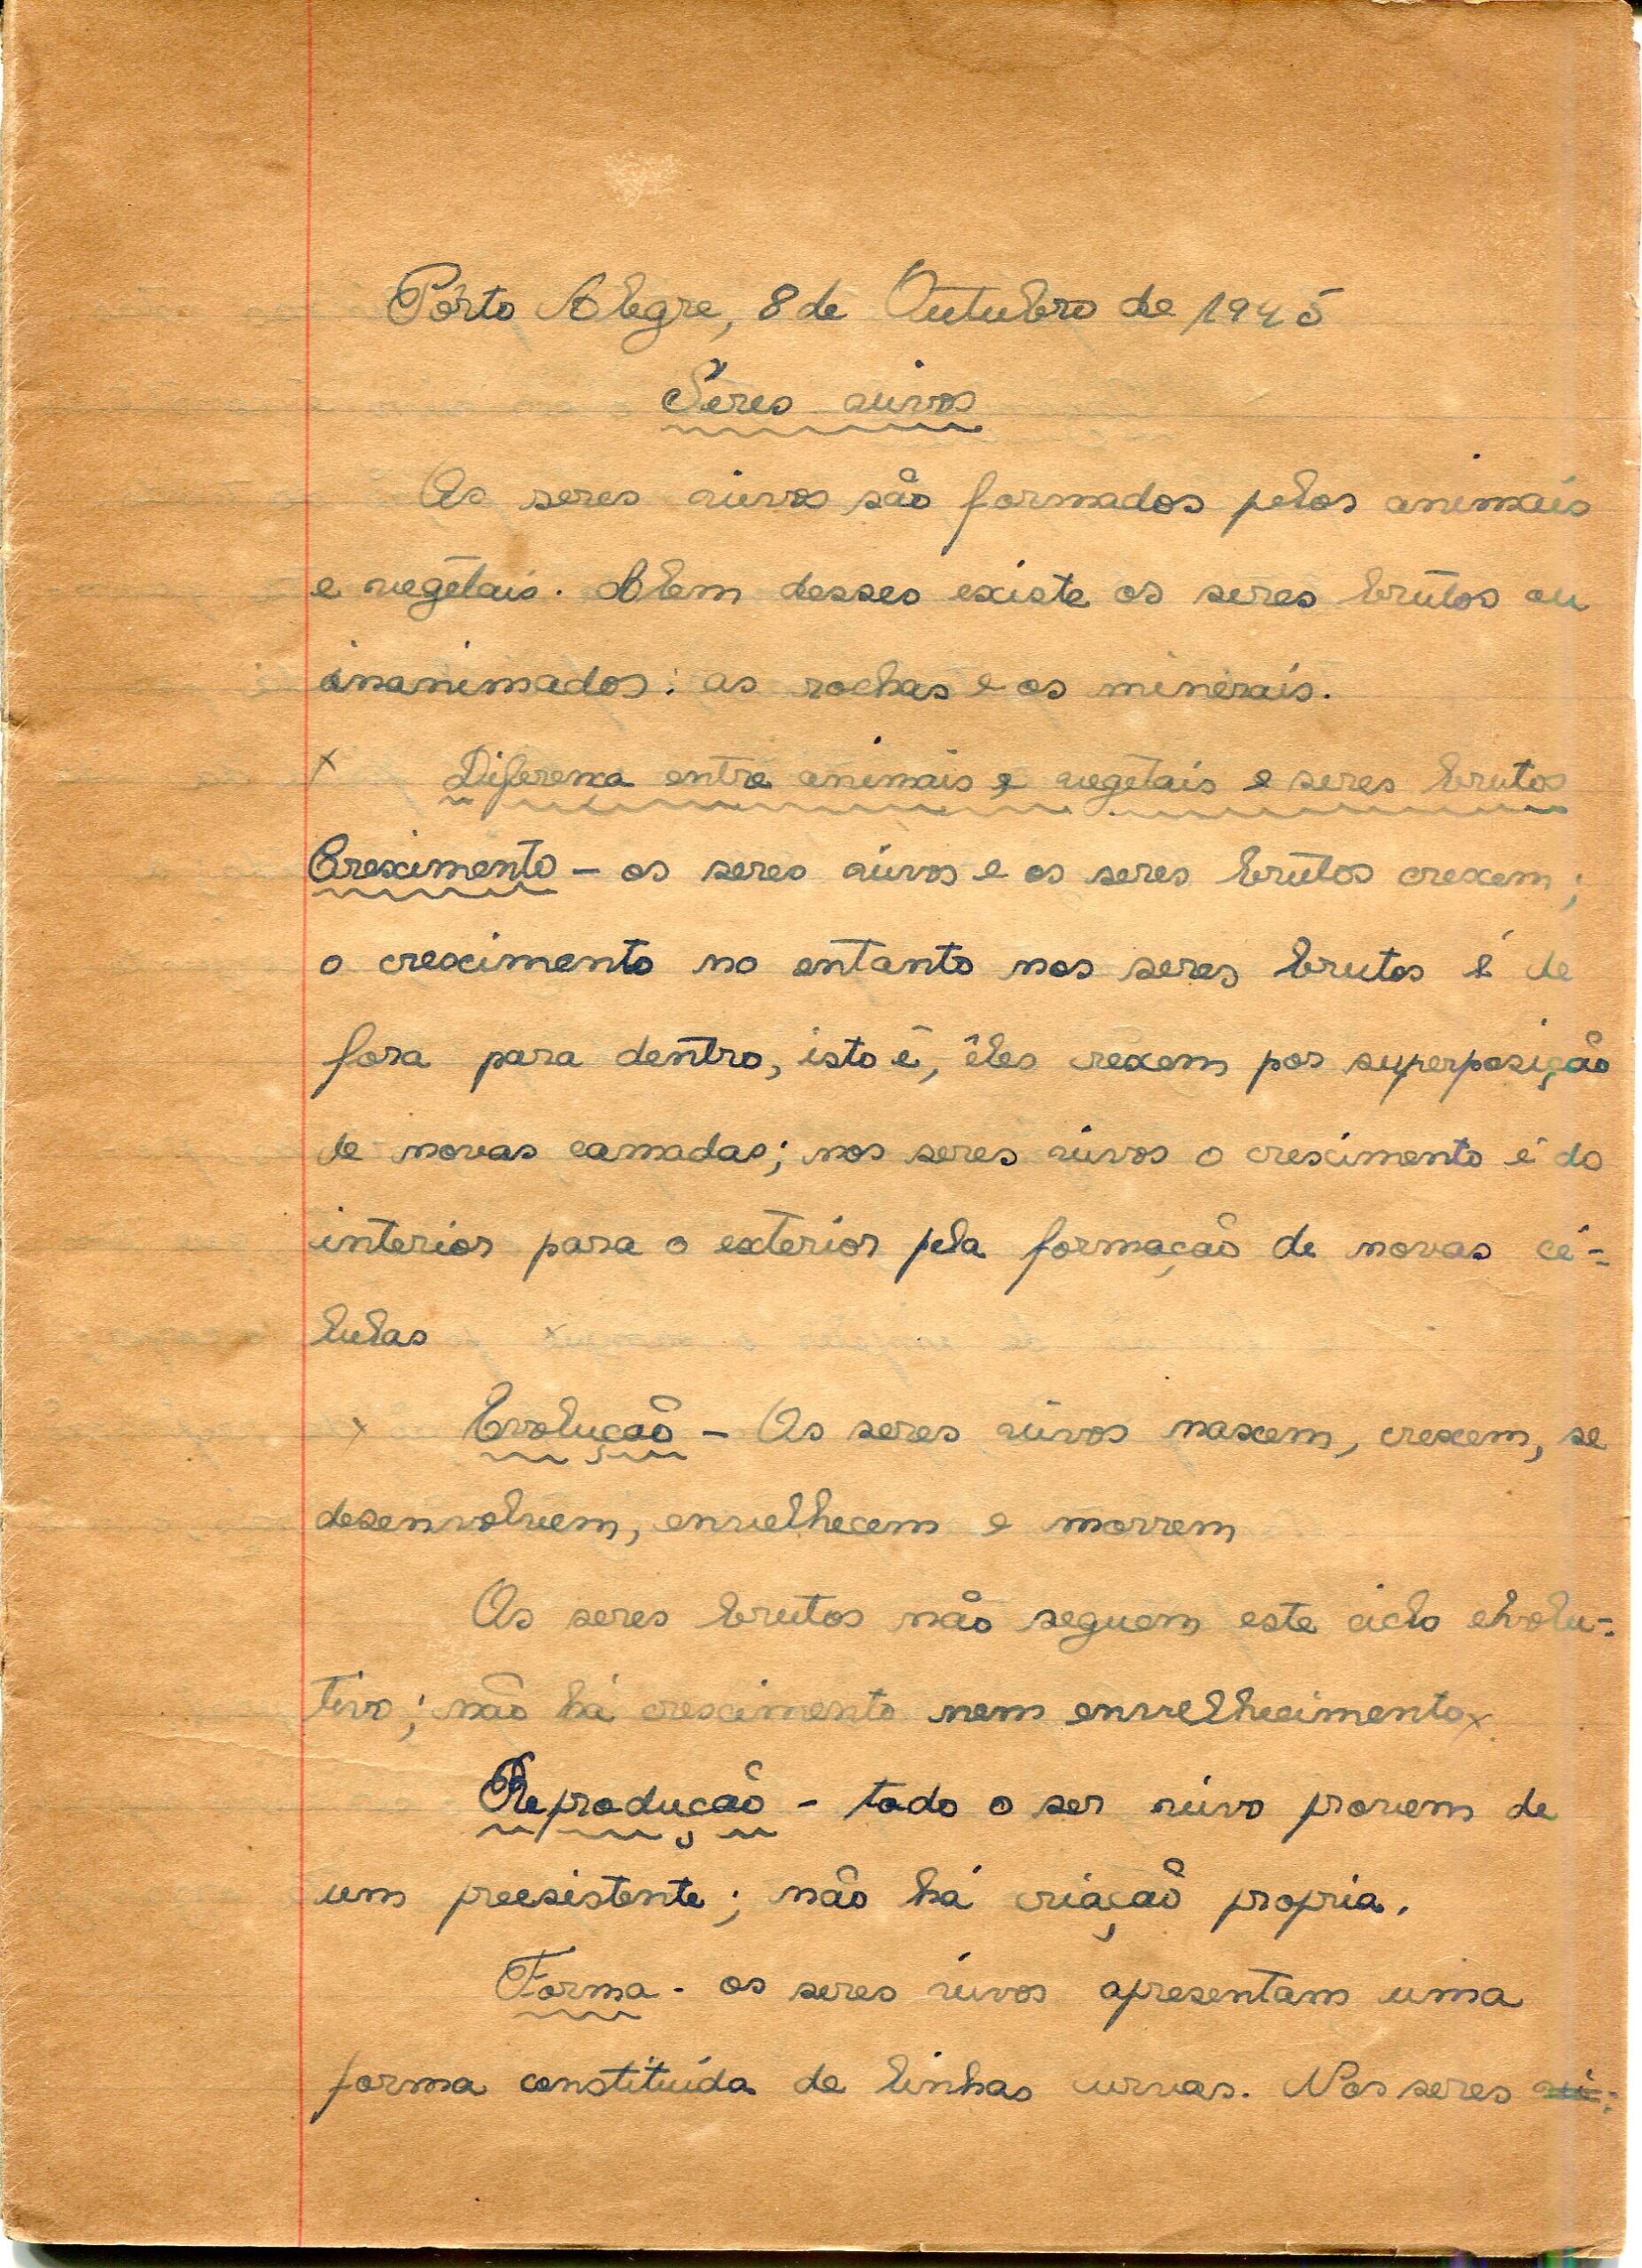 Pôrto Alegre, 8 de Outubro de 1945
Seres vivos
Os seres vivos são formados pelos animais
e vegetais. Alem desses existe os seres brutos ou
inanimados: as rochas e os minerais.
x Diferença entre animais e vegetais e seres brutos
Crescimento - os seres vivos e os seres brutos crescem;
o crescimento no entanto nos seres brutos é de
fora para dentro, isto é, êles crescem por superposição
de novas camadas; nos seres vivos o crescimento é do
interior para o exterior pela formação de novas cé-
lulas x
x Evolução - Os seres vivos nascem, crescem, se
desenvolvem, envelhecem e morrem
Os seres brutos não seguem este ciclo evolu-
tivo; não há crescimento nem envelhecimento x
Reprodução - todo o ser vivo provem de
um preexistente; não há criação propria.
Forma - os seres vivos apresentam uma
forma constituída de linhas curvas. Nos seres